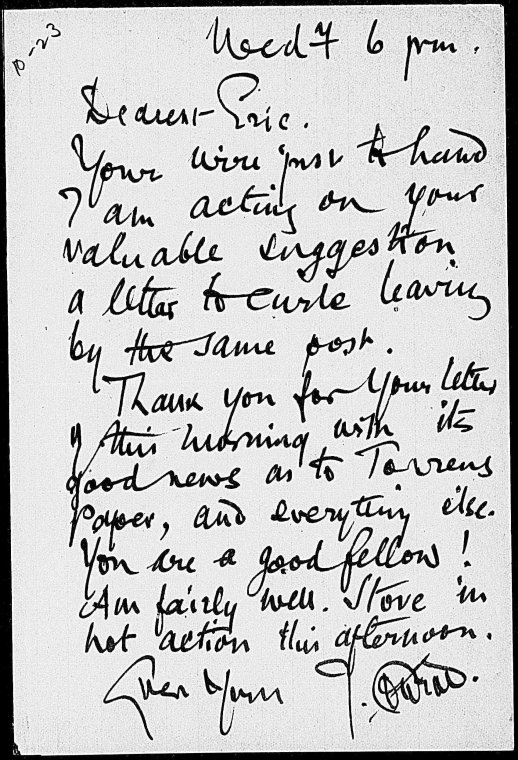 10-23
Wed 7 6 pm.
Dearest Eric.
Your wire just to hand
I am acting on your
valuable suggestion
a letter to Curle leaving
by the same post.
Thank you for Your letter
of this morning with its
good news as to Torrens
Paper, and everything else.
You are a good fellow!
Am fairly well. Stove in
hot action this afternoon.
Ever Yours J. Conrad.